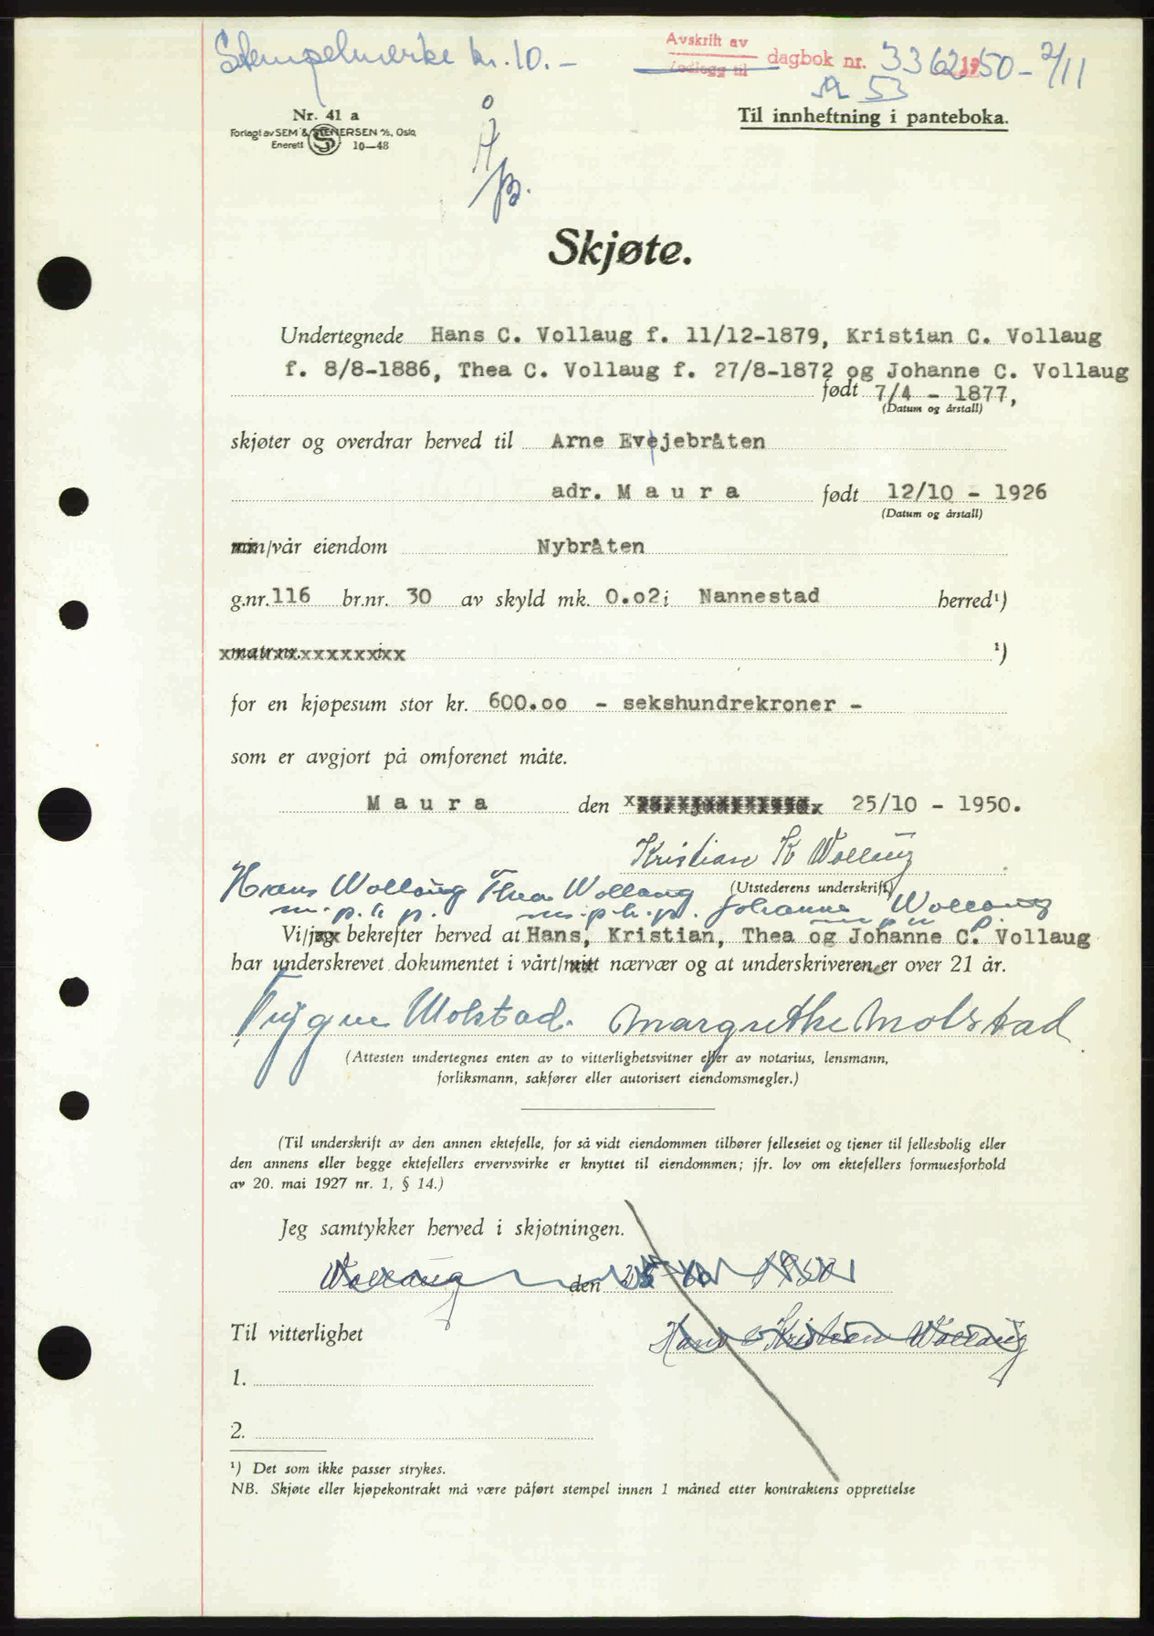 Stempelmerke kr. 10.-
Avskrift av
dagbok nr. 3362 1950 - 2/11
A 53
Nr. 41 a
Forlagt av SEM & STENERSEN A/S, Oslo.
Enerett 10—48
Til innheftning i panteboka.
Skjøte.
Undertegnede Hans C. Vollaug f. 11/12-1879, Kristian C. Vollaug
f. 8/8-1886, Thea C. Vollaug f. 27/8-1872 og Johanne C. Vollaug
født 7/4 - 1877,
(Datum og årstall)
skjøter og overdrar herved til Arne Evejebråten
adr. M a u r a født 12/10 - 1926
(Datum og årstall)
min/vår eiendom Nybråten
g.nr. 116 br.nr. 30 av skyld mk. 0.o2 i Nannestad herred¹)
matr.nr. i ¹)
for en kjøpesum stor kr. 600.oo - sekshundrekroner -
som er avgjort på omforenet måte.
M a u r a den 25/10 - 1950.
Kristian K Wollaug
Hans Wollaug Thea Wollaug (Utstederens underskrift)
m.p.h.p. m.p.h.p. Johanne Wollaug
Vi/jeg bekrefter herved at Hans, Kristian, Thea og Johanne C. Vollaug
har underskrevet dokumentet i vårt/mitt nærvær og at underskriveren er over 21 år.
Trygve Molstad. Margrethe Molstad
(Attesten undertegnes enten av to vitterlighetsvitner eller av notarius, lensmann,
forliksmann, sakfører eller autorisert eiendomsmegler.)
(Til underskrift av den annen ektefelle, for så vidt eiendommen tilhører felleseiet og tjener til fellesbolig eller
den annens eller begge ektefellers ervervsvirke er knyttet til eiendommen; jfr. lov om ektefellers formuesforhold
av 20. mai 1927 nr. 1, § 14.)
Jeg samtykker herved i skjøtningen.
Wollaug den 25-10 1950
Til vitterlighet Hans Kristian Wollaug
1.
2.
¹) Det som ikke passer strykes.
NB. Skjøte eller kjøpekontrakt må være påført stempel innen 1 måned etter kontraktens opprettelse